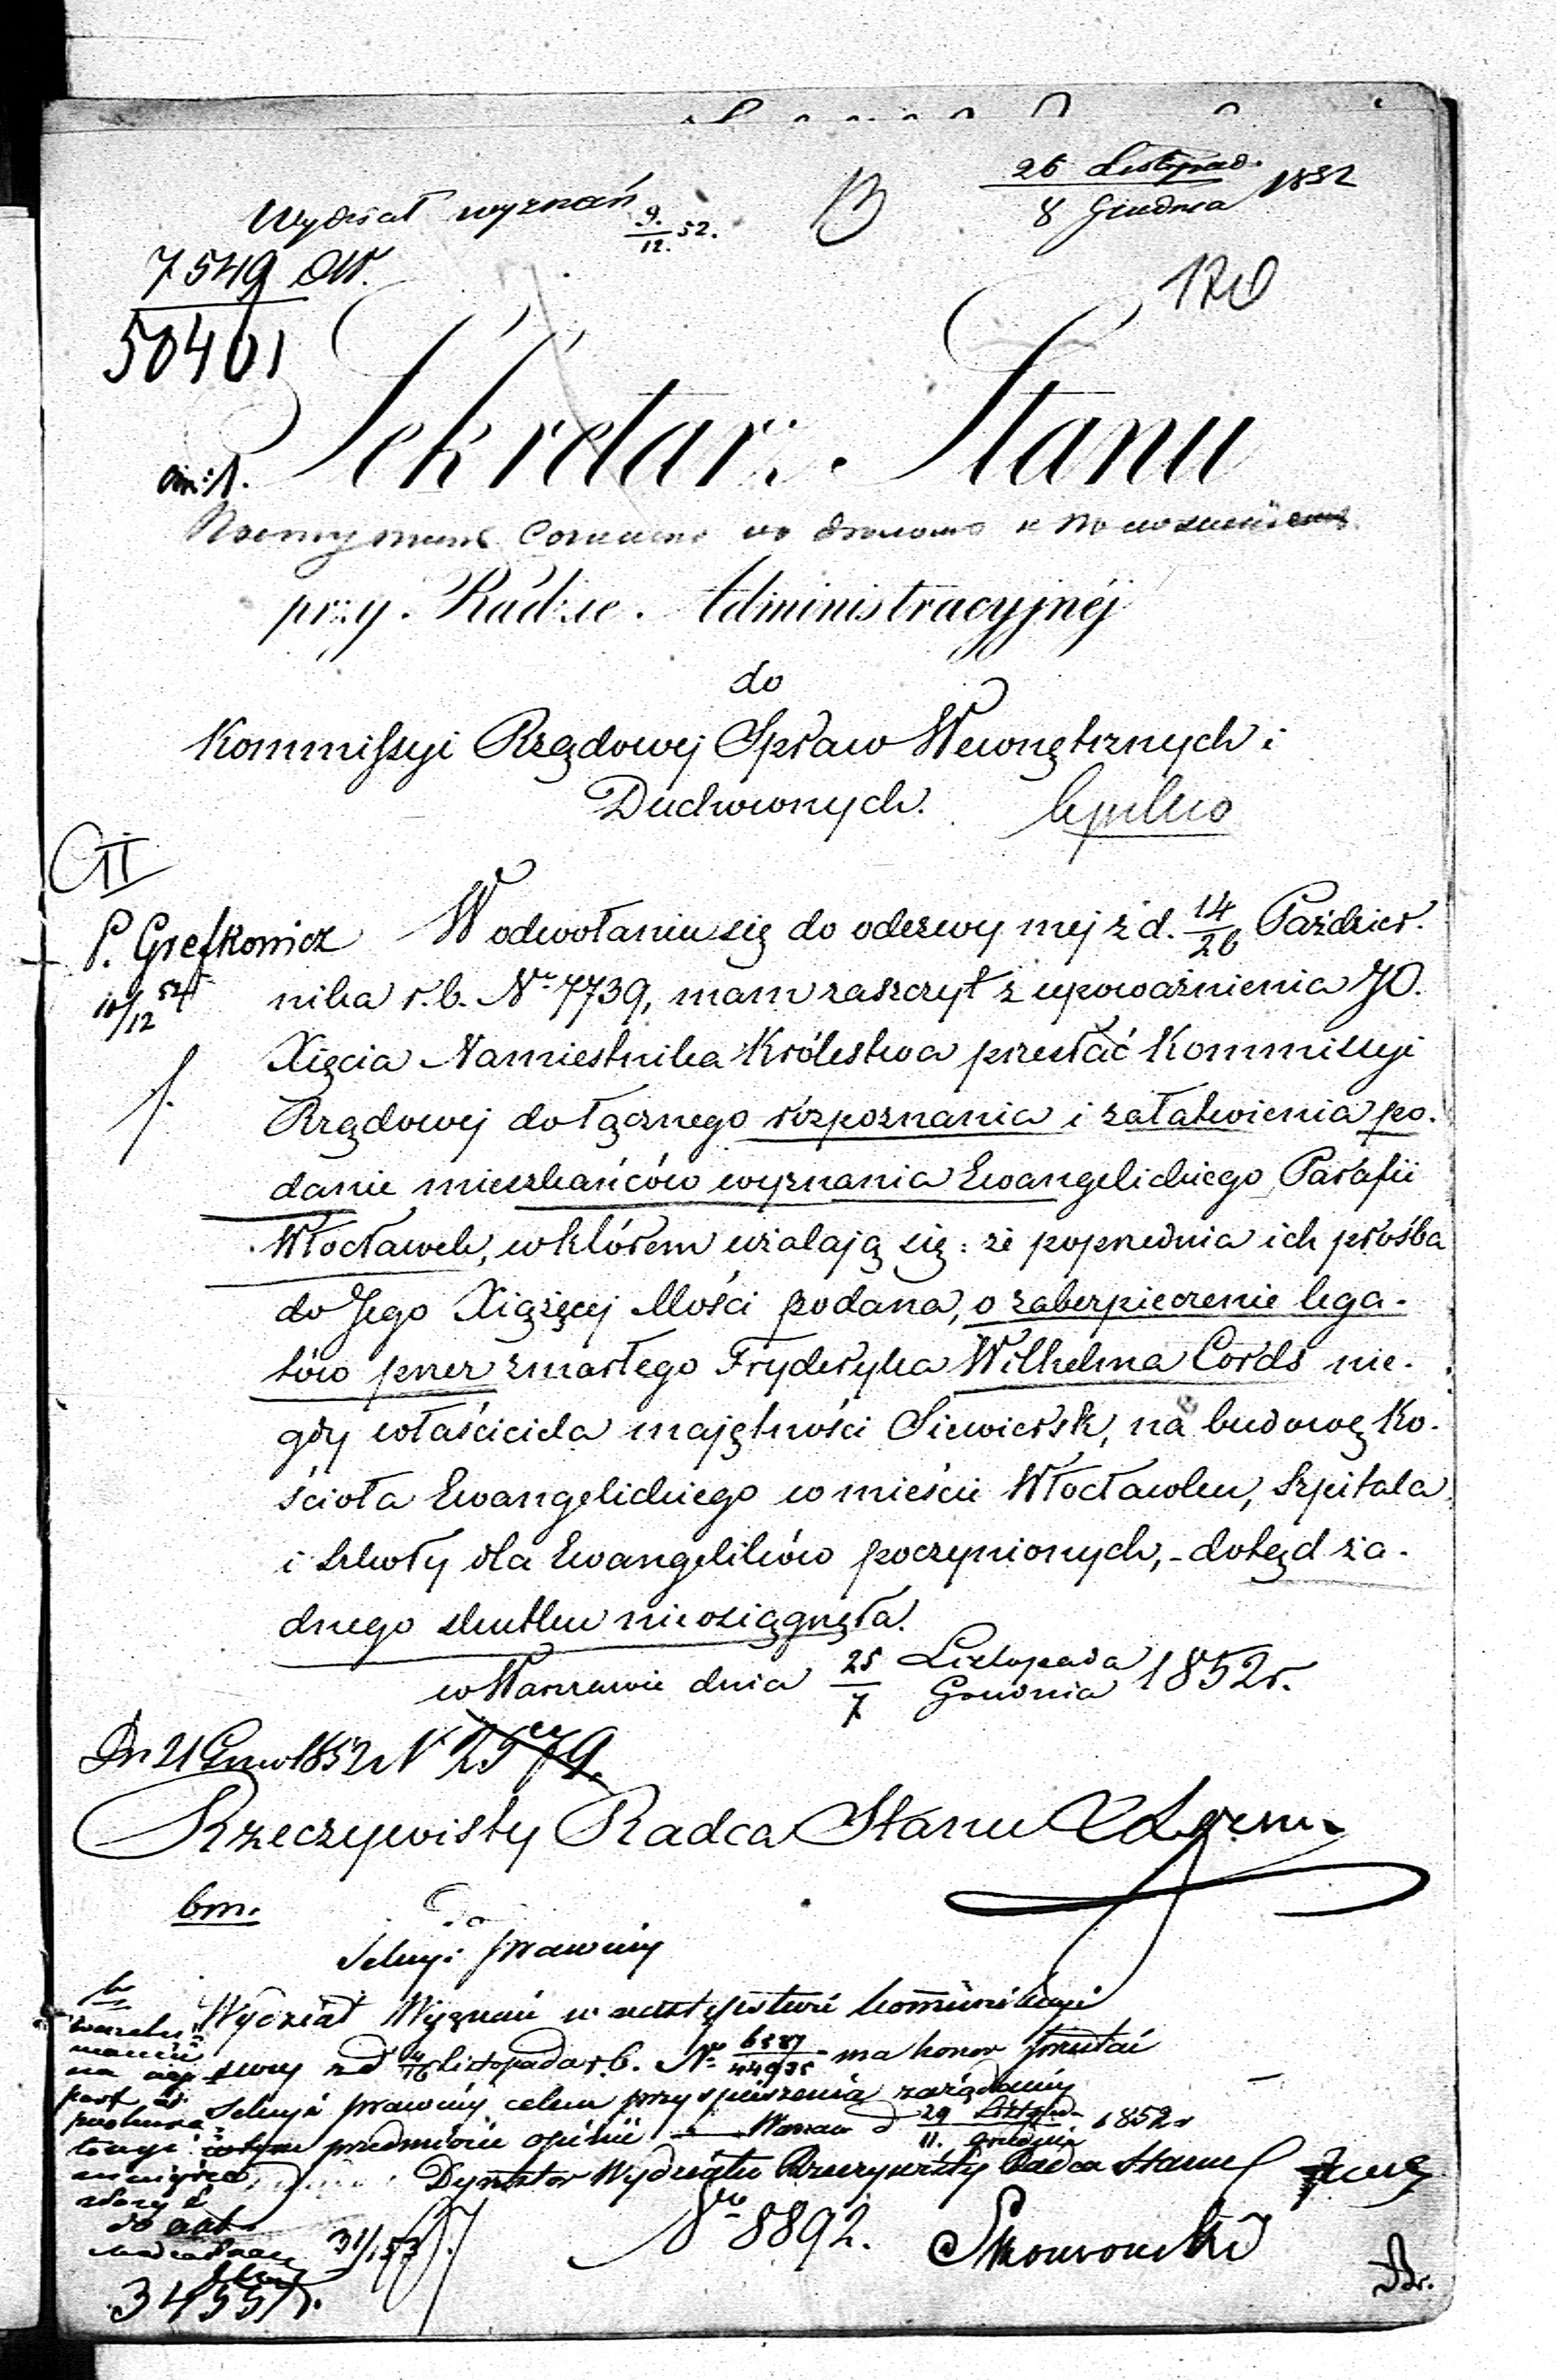 26 Listopad.
8 Grudnia 1852
Wydział wyznań 9./12. 52.
B
7549 OW.
50401
170
Sekretarz Stanu
przy Radzie Administracyjnéj
do
Kommissyi Rządowej Spraw Wewnętrznych i
Duchownych.
II
P. Grefkowicz
10/12 52
W odwołaniu się do odezwy mej z d. 14/26 Paździer.
nika r.b. No 7739, mam zaszczyt z upoważnienia JO.
Xięcia Namiestnika Królestwa przesłać Kommissyi
Rządowej do łącznego rozpoznania i załatwienia po.
danie mieszkańców wyznania Ewangelickiego Parafii
Włocławek, w którem użalają się: że poprzednia ich prośba
do Jego Xiążęcej Mości podana, o zabezpieczenie lega.
tów przez zmarłego Fryderyka Wilhelma Cords nie.
gdy właściciela majętności Siewiersk, na budowę Ko.
ścioła Ewangelickiego w mieście Włocławku, Szpitala
i szkoły dla Ewangelików poczynionych, - dotąd ża.
dnego skutku nie osiągnęła.
w Warszawie dnia 25 Listopada / 7 Grudnia 1852 r.
Dn 21 Grud 1852 N 2579.
Rzeczywisty Radca Stanu
bm.
Do
Sekcyi prawnéy
Wydział Wyznań w następstwie kommunikacyi
swey z d 4/16 listopada r.b. No 6587/44935 ma honor przesłać
Sekcyi prawnéy celem przyspieszenia zażądanéy
w tym przedmiocie opinii Warszaw d 29 Listopad / 11. Grudnia 1852 r
Dyrektor Wydziału Rzeczywisty Radca Stanu
No 8892.
31/1 53